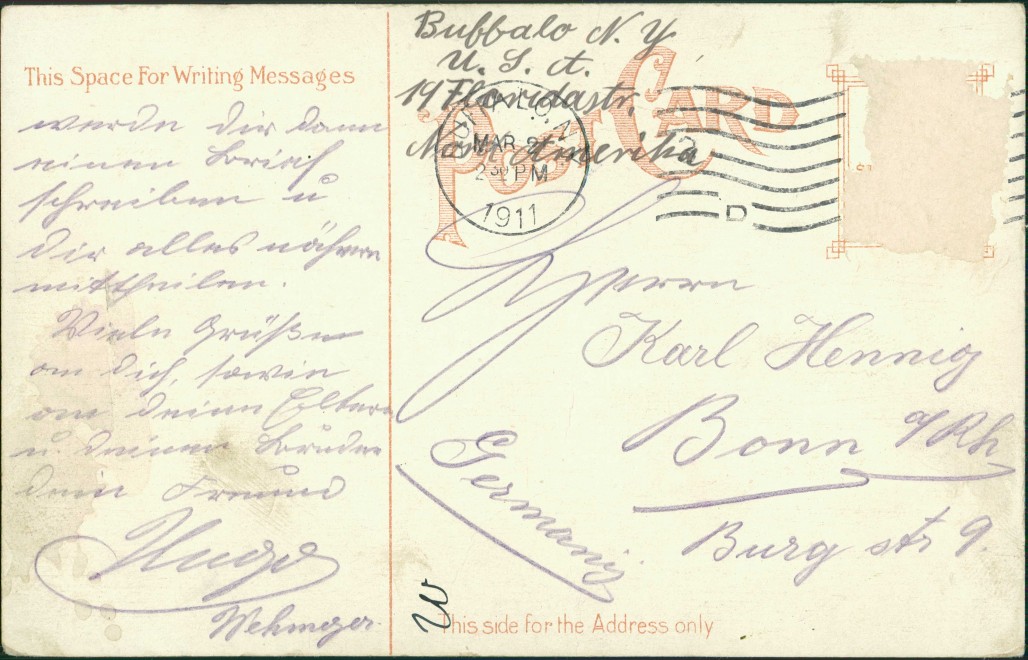 This Space For Writing Messages
werde dir dann
einen Brief
schreiben u
dir alles nähere
mittheilen.
Viele Grüße
an dich, sowie
an deine Eltern
u. deinen Bruder
dein Freund
Hugo
Wehmeyer
Buffalo N. Y
U. S. A.
19 Floridastr.
Nord Amerika
POST CARD
BUFFALO, N.
MAR 2
2 30 PM
1911
D
Herrn
Karl Hennig
Bonn a/Rh
Burg str 9.
Germany
W
This side for the Address only